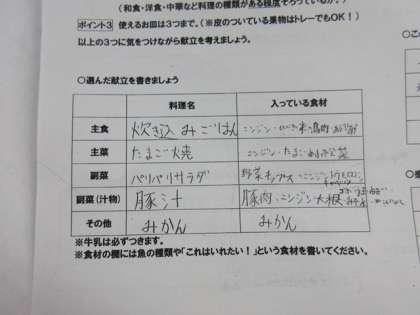 (和食・洋食・中華など料理の種類がある程度そろっているか?)
ポイント3 使えるお皿は3つまで。(※皮のついている果物はトレーでもOK!)
以上の3つに気をつけながら献立を考えましょう。
○選んだ献立を書きましょう
料理名 入っている食材
主食 炊き込みごはん ニンジン
主菜 たまご焼 ニンジン・たまご
副菜 パリパリサラダ 野菜チップス・ニンジン
副菜(汁物) 豚汁 豚肉・ニンジン・大根
その他 みかん みかん
※牛乳は必ずつきます。
※食材の欄には魚の種類や「これはいれたい!」という食材を書いてください。